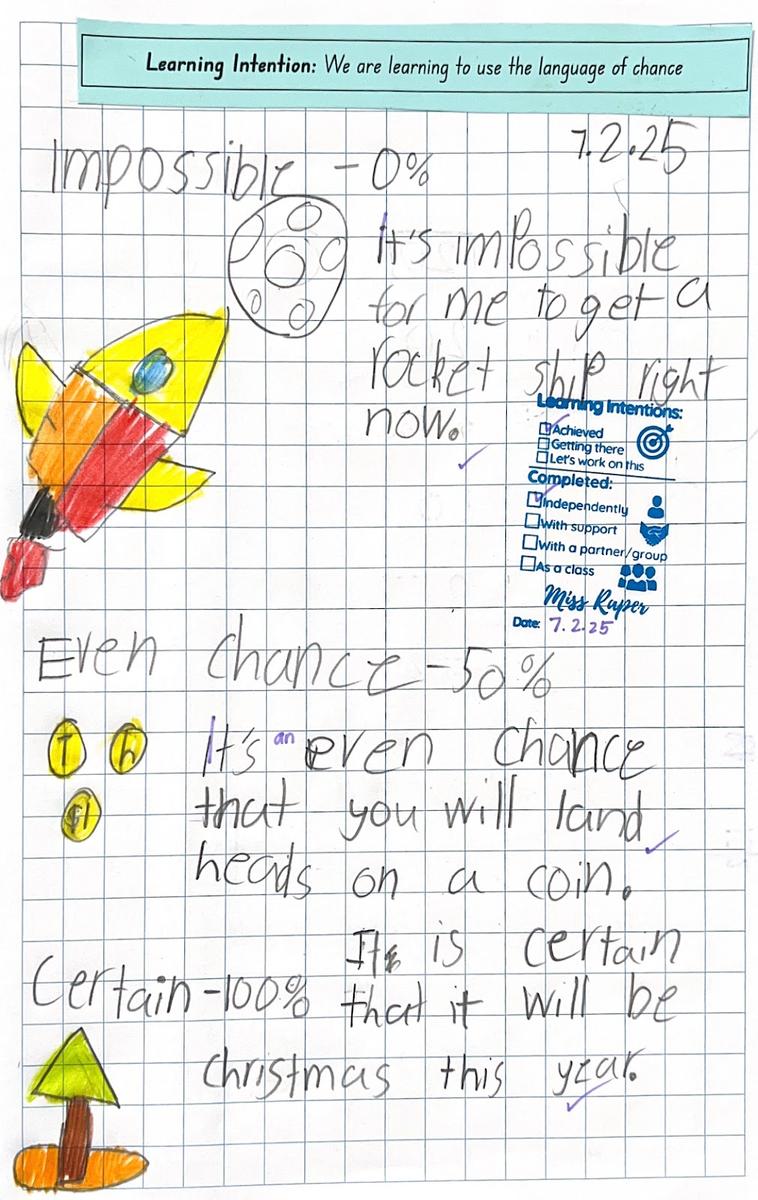 Learning Intention: We are learning to use the language of chance
7.2.25
Impossible - 0%
It's impossible
for me to get a
rocket ship right
now.
Learning Intentions:
Achieved
Getting there
Let's work on this
Completed:
Independently
With support
With a partner/group
As a class
Miss Raper
Date: 7.2.25
Even chance - 50%
T h
It's an even chance
that you will land
heads on a coin.
Certain - 100%
It is certain
that it will be
christmas this year.